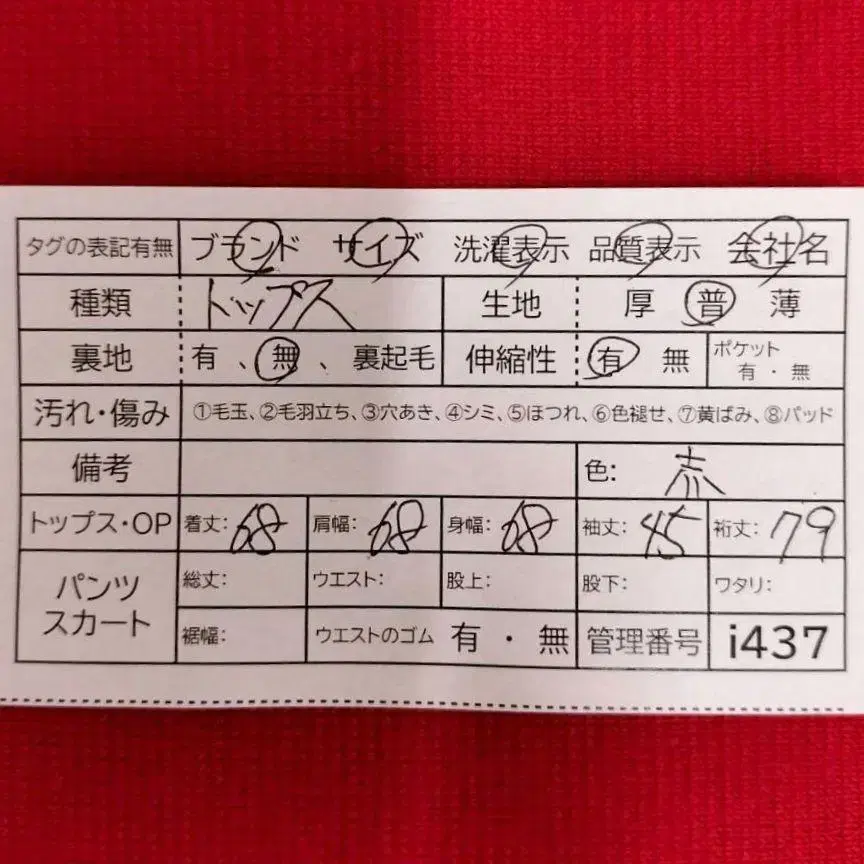 タグの表記有無 ブランド サイズ 洗濯表示 品質表示 会社名
種類 トップス 生地 厚 普 薄
裏地 有 、無 、裏起毛 伸縮性 有 無 ポケット 有・無
汚れ・傷み ①毛玉、②毛羽立ち、③穴あき、④シミ、⑤ほつれ、⑥色褪せ、⑦黄ばみ、⑧パッド
備考 色: 赤
トップス・OP 着丈: 68 肩幅: 68 身幅: 68 袖丈: 45 裄丈: 79
パンツ スカート 総丈: ウエスト: 股上: 股下: ワタリ:
裾幅: ウエストのゴム 有・無 管理番号 i437